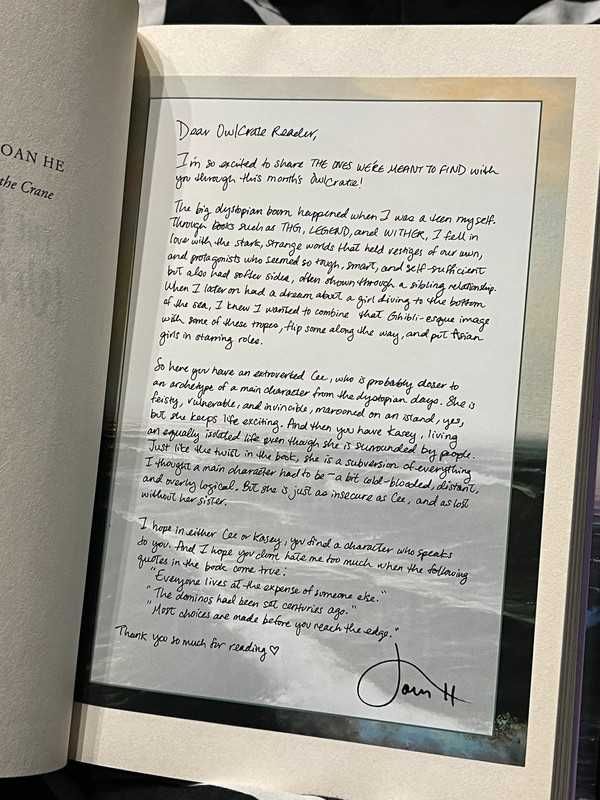 OAN HE
the Crane
Dear OwlCrate Reader,
I'm so excited to share THE ONES WE'RE MEANT TO FIND with
you through this month's OwlCrate!
The big dystopian boom happened when I was a teen myself.
Through books such as THG, LEGEND, and WITHER, I fell in
love with the stark, strange worlds that held vestiges of our own,
and protagonists who seemed so tough, smart, and self-sufficient
but also had softer sides, often shown through a sibling relationship.
When I later on had a dream about a girl diving to the bottom
of the sea, I knew I wanted to combine that Ghibli-esque image
with some of these tropes, flip some along the way, and put Asian
girls in starring roles.
So here you have an extroverted Cee, who is probably closer to
an archetype of a main character from the dystopian days. She is
feisty, vulnerable, and invincible, marooned on an island, yes,
but she keeps life exciting. And then you have Kasey, living
an equally isolated life even though she is surrounded by people.
Just like the twist in the book, she is a subversion of everything
I thought a main character had to be – a bit cold-blooded, distant,
and overly logical. But she is just as insecure as Cee, and as lost
without her sister.
I hope in either Cee or Kasey, you find a character who speaks
to you. And I hope you don't hate me too much when the following
quotes in the book come true:
"Everyone lives at the expense of someone else."
"The dominos had been set centuries ago."
"Most choices are made before you reach the edge."
Thank you so much for reading ♡
Joan H